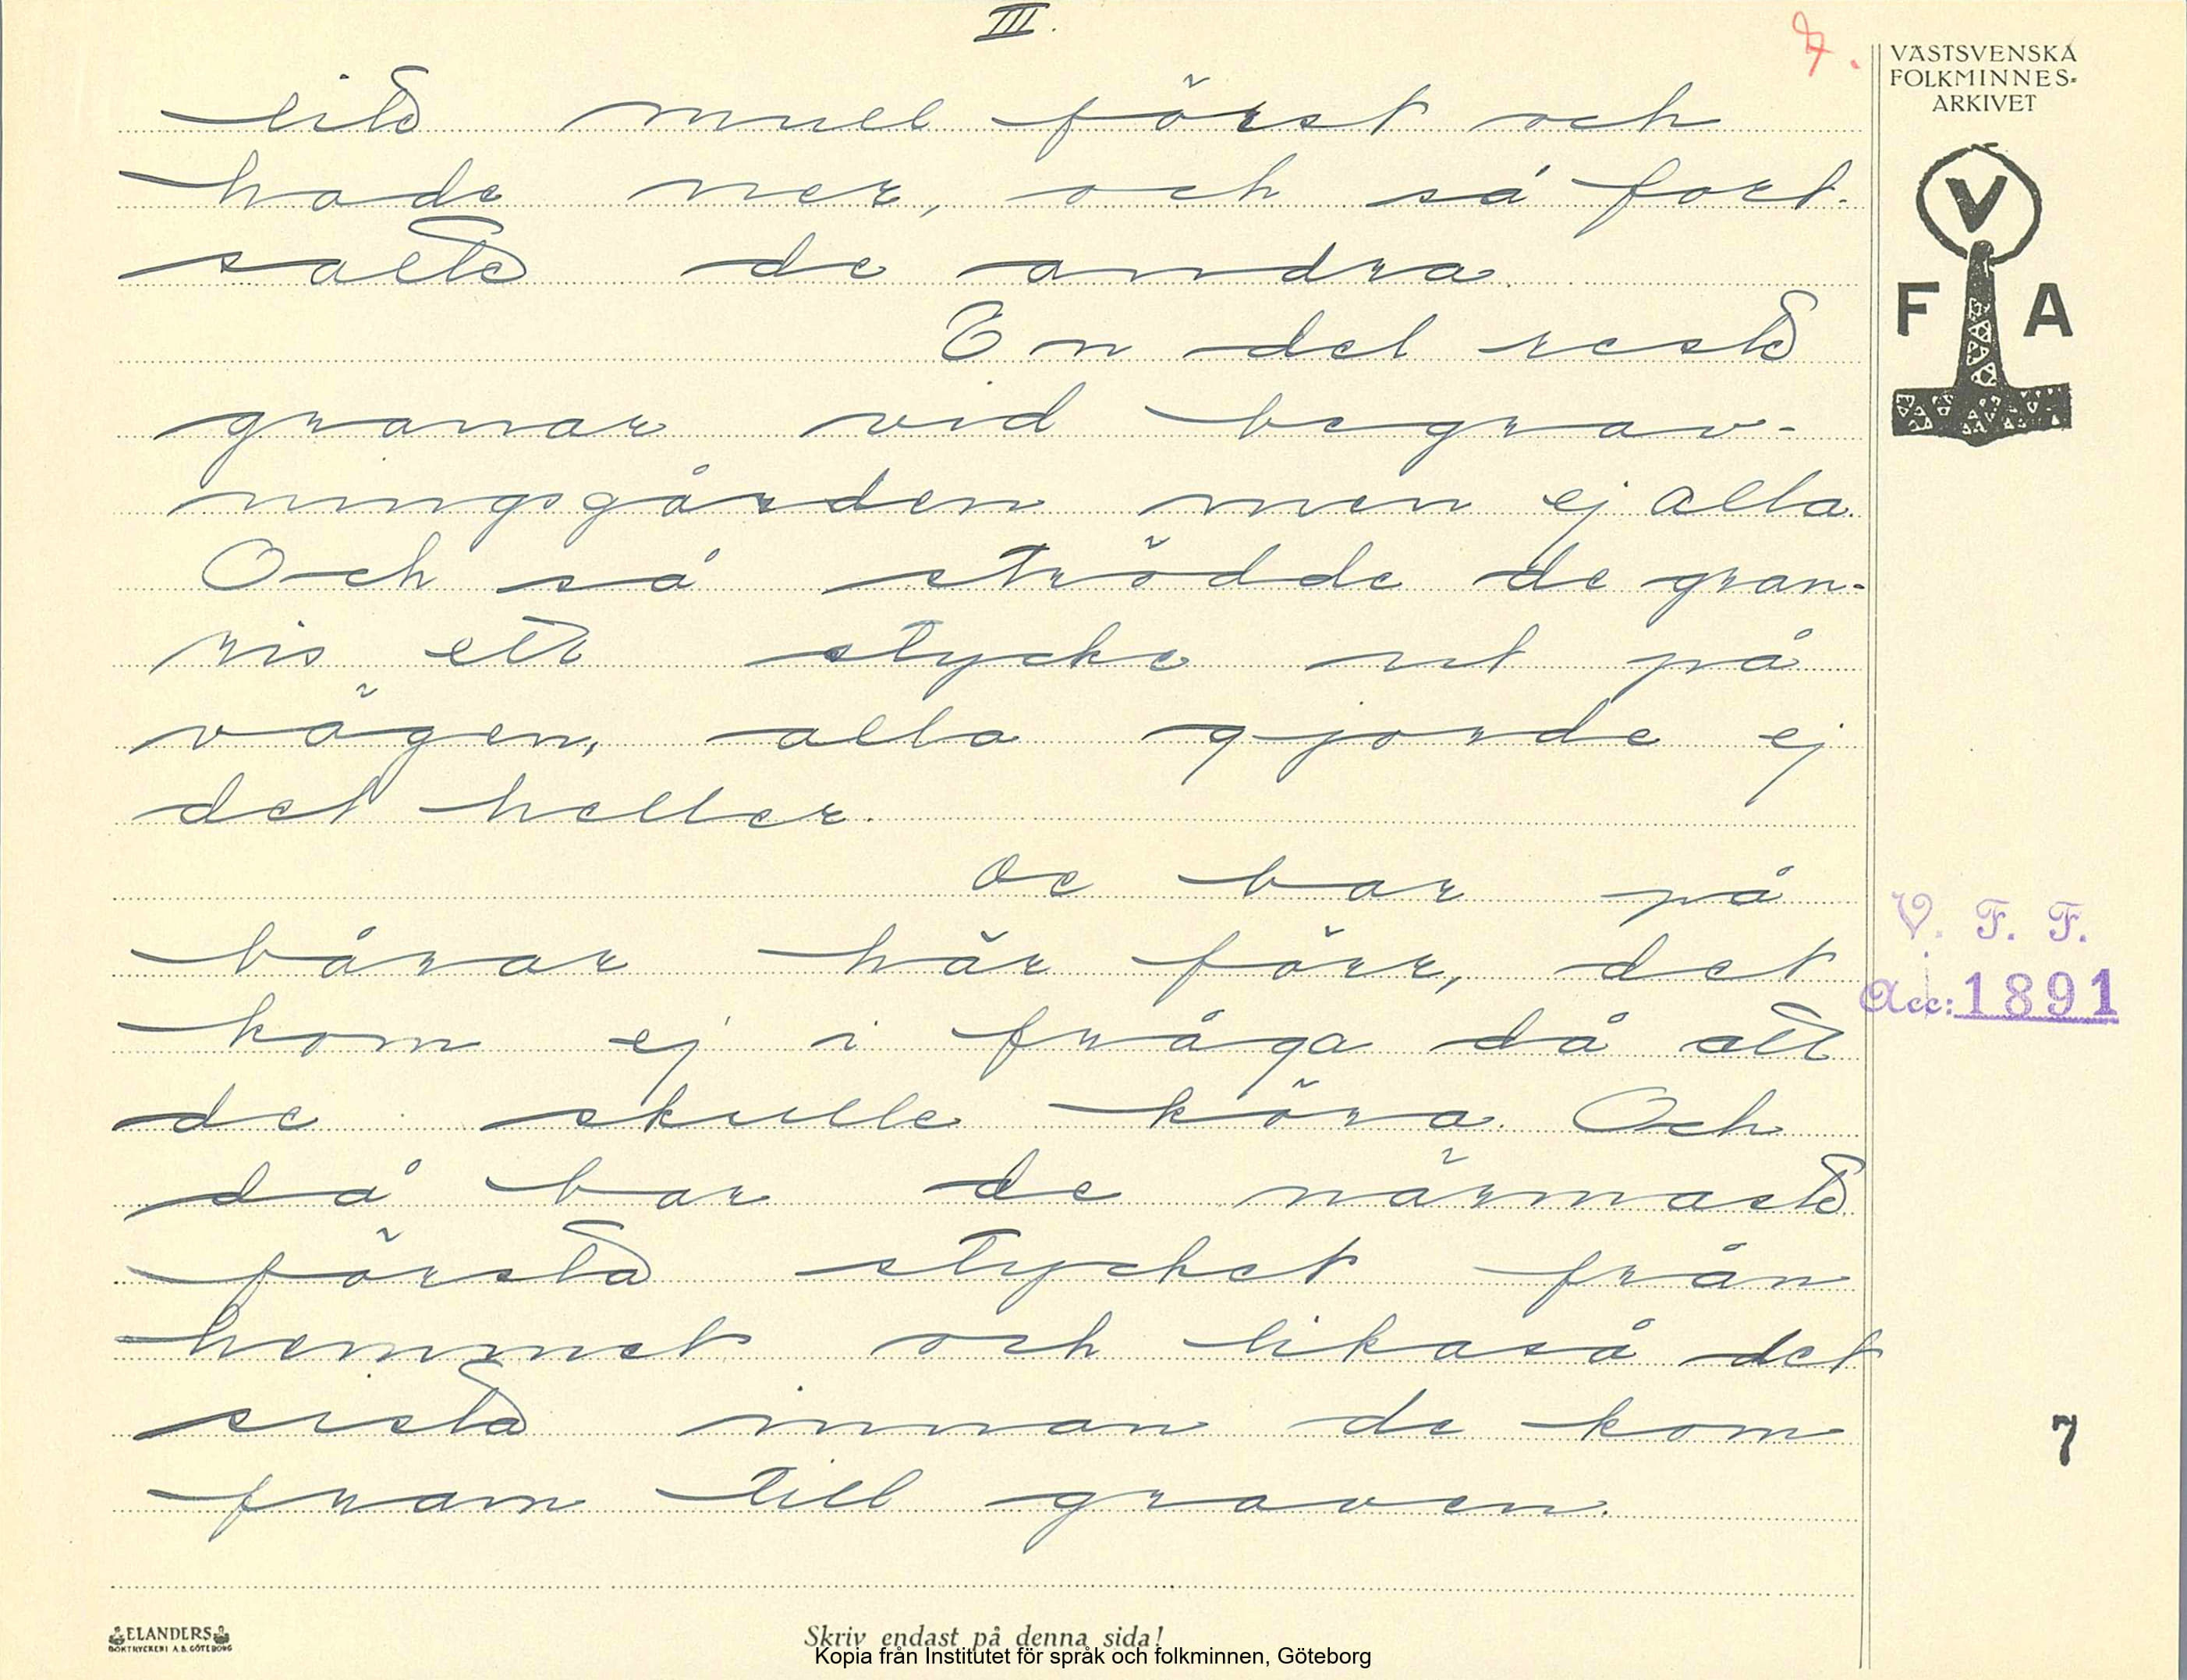 III.
7.
VÄSTSVENSKA
FOLKMINNES-
ARKIVET
V
F A
lite mull först och
hade ner, och så fort-
satte de andra.
En del reste
granar vid begrav-
ningsgården men ej alla.
Och så strödde de gran-
ris ett stycke ut på
vägen, alla gjorde ej
det heller.
De bar på
bårar här förr, det
kom ej i fråga då att
de skulle köra. Och
då bar de närmaste
första stycket från
hemmet och likaså det
sista innan de kom
fram till graven.
V. F. F.
Acc: 1891
7
ELANDERS
BOKTRYCKERI A.B. GÖTEBORG
Skriv endast på denna sida!
Kopia från Institutet för språk och folkminnen, Göteborg